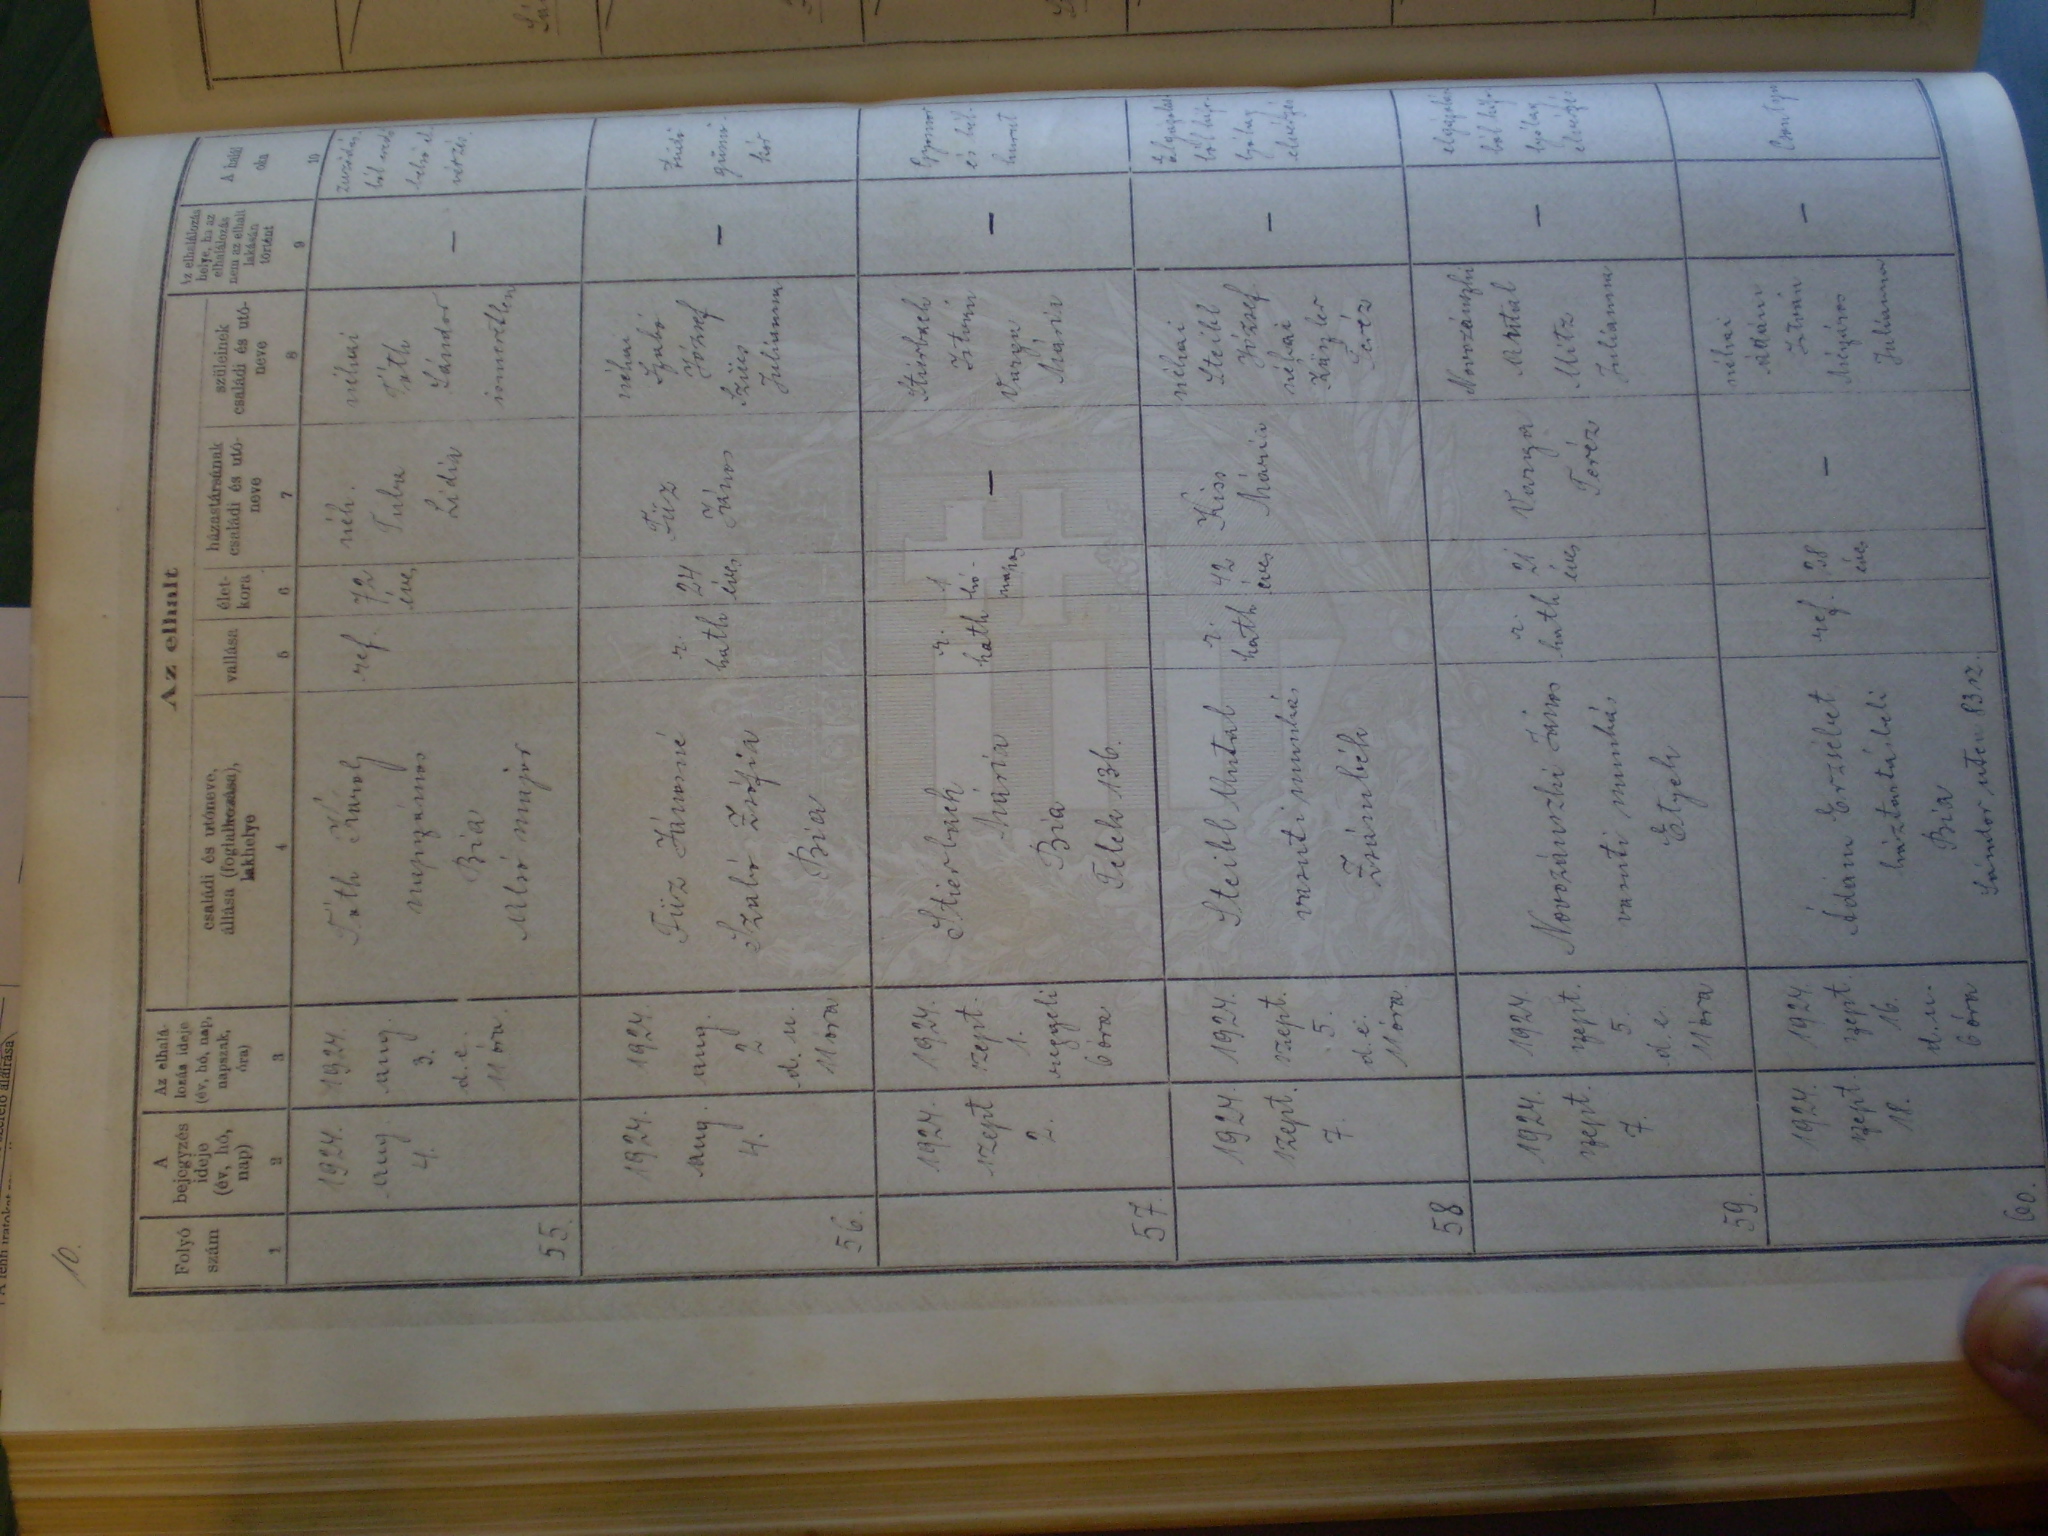 10.
Az elhalt
Folyó
szám
A
bejegyzés
ideje
(év, hó,
nap)
Az elhalá-
lozás ideje
(év, hó, nap,
napszak,
óra)
családi és utóneve,
állása (foglalkozása),
lakhelye
vallása
élet-
kora
házastársának
családi és utó-
neve
szüleinek
családi és utó-
neve
Az elhalálozás
helye, ha az
elhalálozás
nem az elhalt
lakásán
történt
A halál
oka
1
2
3
4
5
6
7
8
9
10
55.
1924.
aug.
4.
1924.
aug.
3.
d. e.
11 óra.
Tóth Károly
napszámos
Bia
Alsó major
ref.
72
éves
néh.
Lidia
néhai
Tóth
Sándor
ismeretlen
—
56.
1924.
aug.
4.
1924.
aug.
2
d. u.
11 óra
Füz Jánosné
Szabó Zsófia
Bia
r.
kath
24
éves
Füz
János
néhai
Szabó
József
Szücs
Julianna
—
Tüdő
gümő-
kór
57.
1924.
szept
2.
1924.
szept.
1.
reggeli
6 óra
Stierbach
Mária
Bia
Telek 136.
r.
kath
1
hó-
napos
—
Stierbach
István
Varga
Mária
—
Gyomor
és bél-
hurut
58
1924.
szept.
7.
1924.
szept.
5.
d. e.
11 óra.
Steibl Antal
vasuti munkás
Zsámbék
r.
kath
42
éves
Kiss
Mária
néhai
Steibl
József
néhai
Teréz
—
59.
1924.
szept.
7.
1924.
szept.
5.
d. e.
11 óra
Novozánszki János
vasuti munkás
Etyek
r.
kath
21
éves
Varga
Teréz
Novozánszki
Antal
Mitz
Julianna
—
60.
1924.
szept.
18.
1924.
szept.
16.
d. u.
6 óra
Ádám Erzsébet
háztartásbeli
Bia
Sándor utca 83 sz.
ref.
éves
—
néhai
Ádám
István
Mészáros
Julianna
—